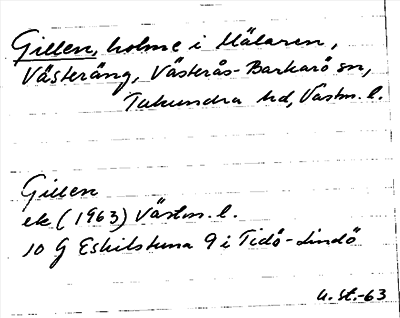 Gillen, holme i Mälaren,
Västeräng, Västerås-Barkarö sn,
Tuhundra hd, Västm. l.
Gillen
ek (1963) Västm. l.
10 G Eskilstuna 9 i Tidö-Lindö
u. st.-63